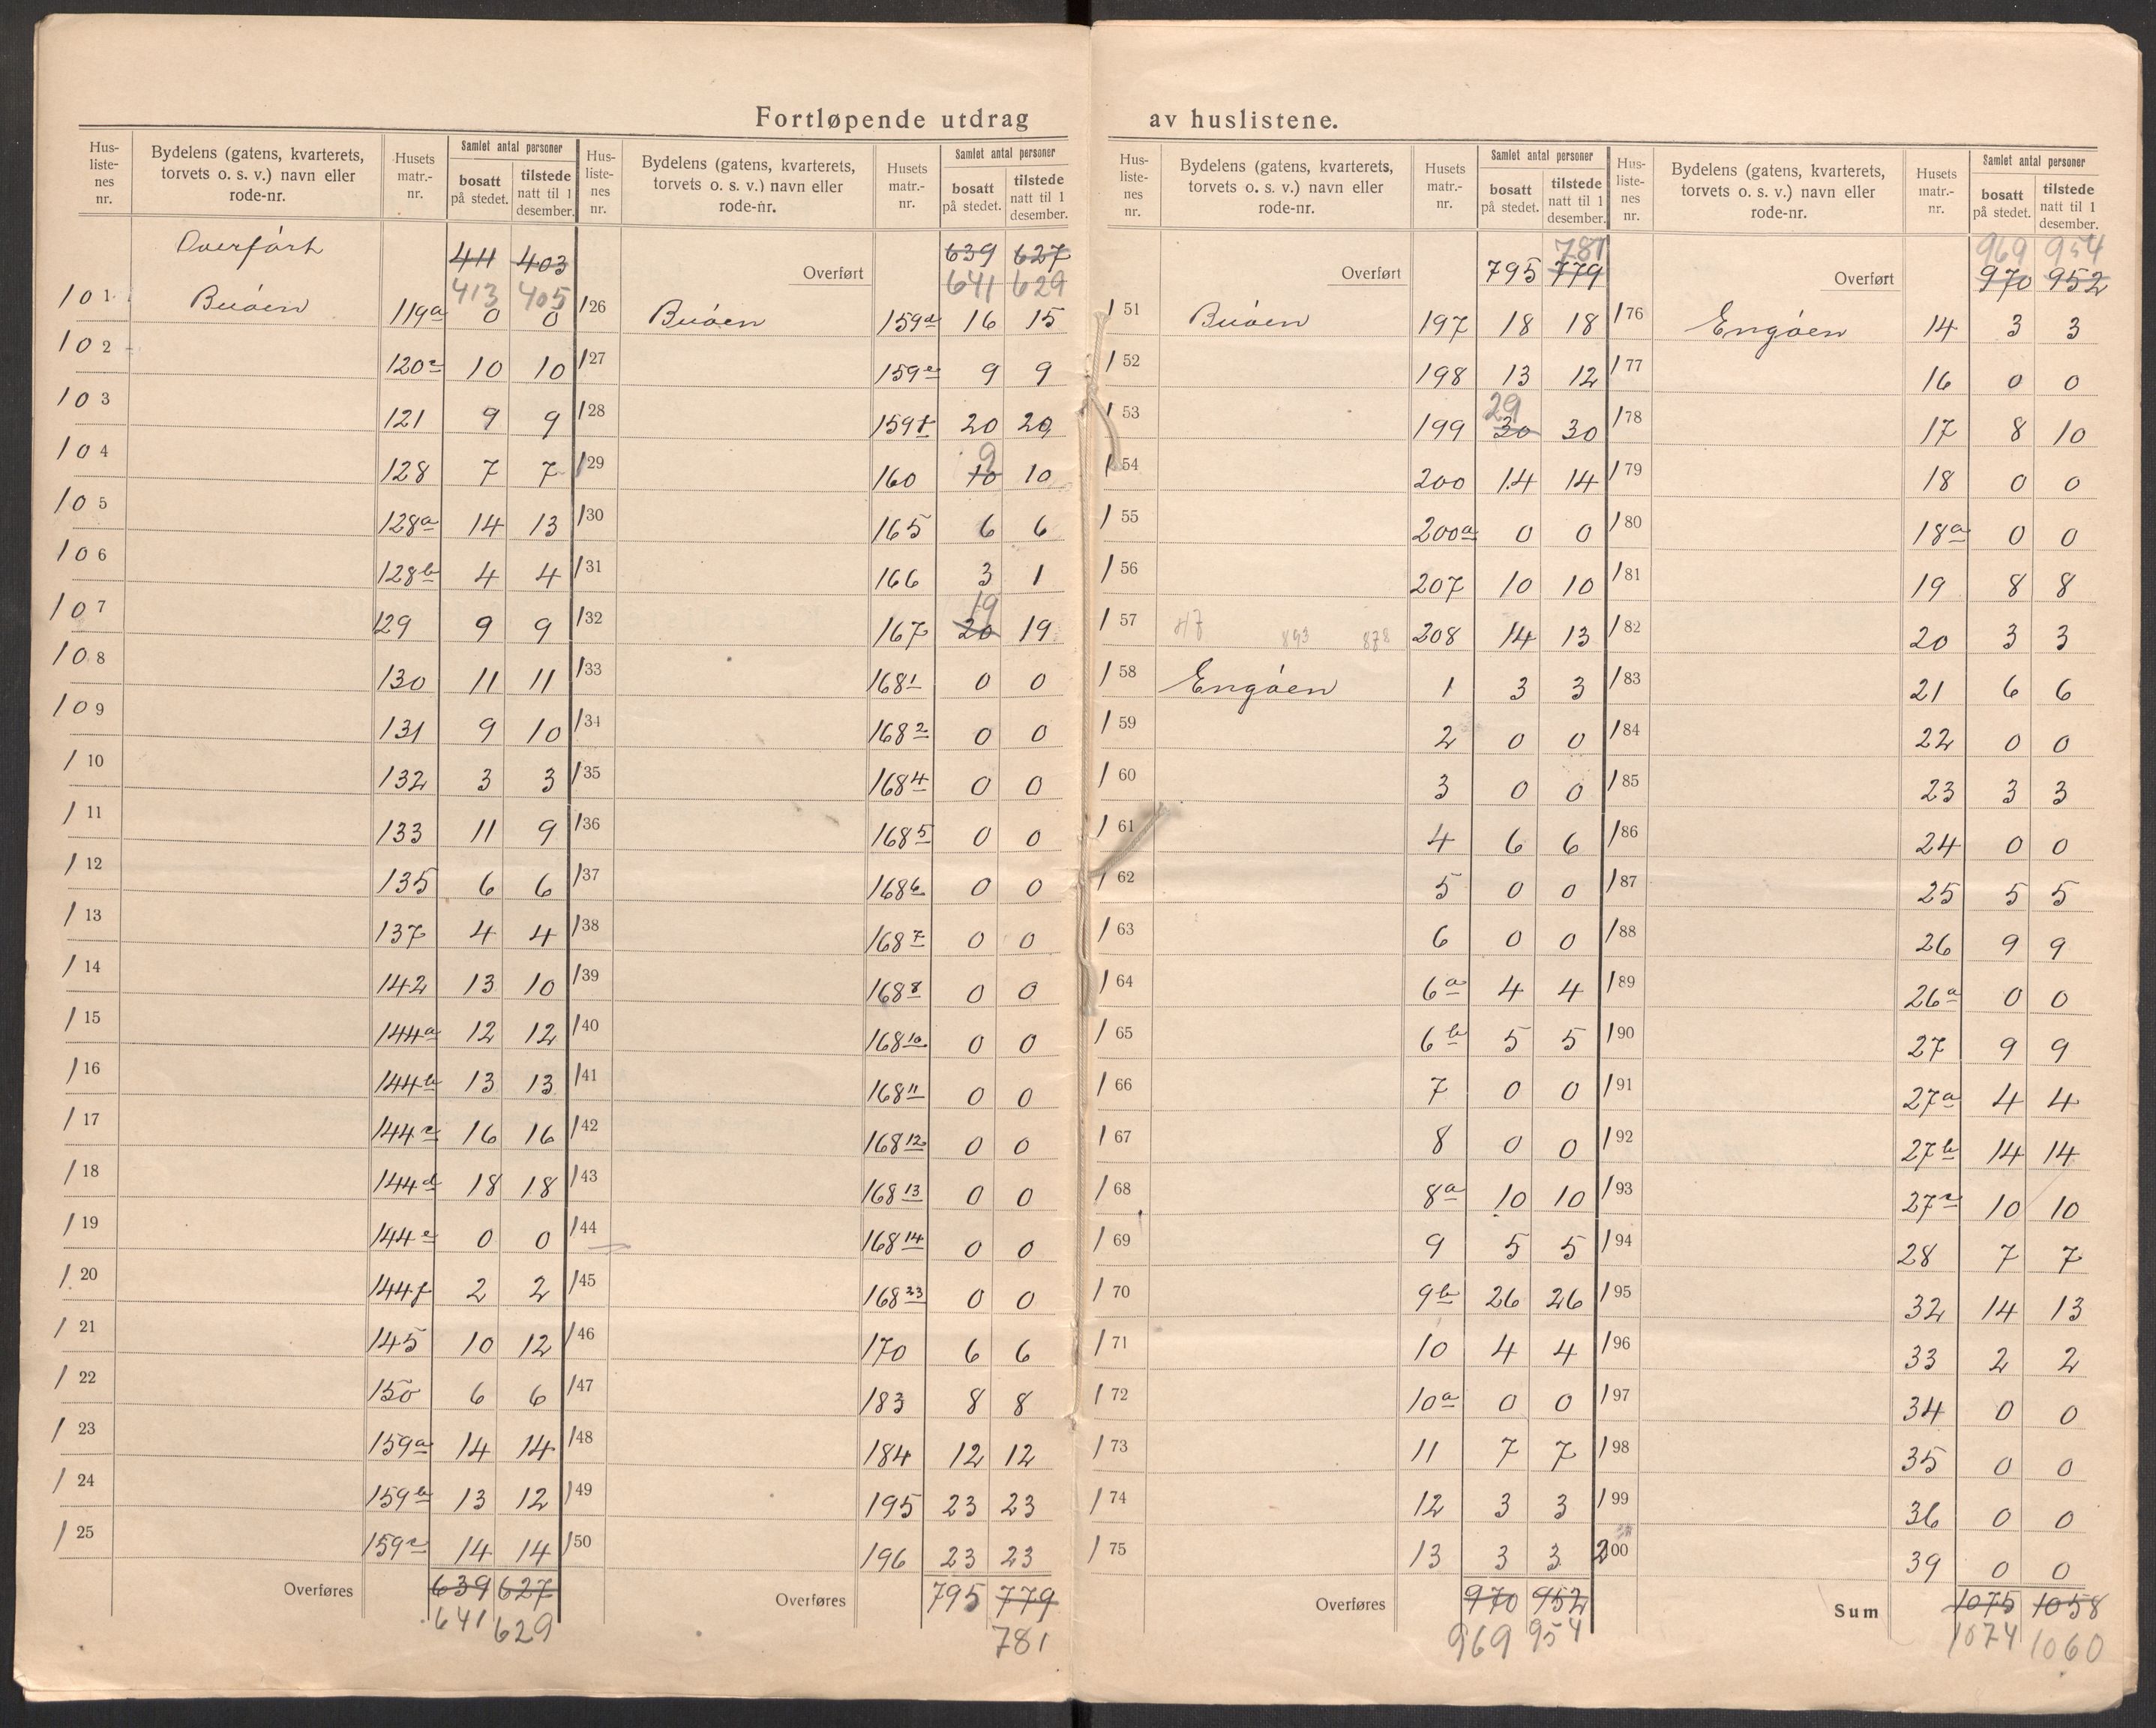 Fortløpende utdrag av huslistene.
Hus-listenes nr. | Bydelens (gatens, kvarterets, torvets o. s. v.) navn eller rode-nr. | Husets matr.-nr. | Samlet antal personer bosatt på stedet. | tilstede natt til 1 desember.
Overført 411 403
413 405
101 Buøen 119a 0 0
102 120c 10 10
103 121 9 9
104 128 7 7
105 128a 14 13
106 128b 4 4
107 129 9 9
108 130 11 11
109 131 9 10
110 132 3 3
111 133 11 9
112 135 6 6
113 137 4 4
114 142 13 10
115 144a 12 12
116 144b 13 13
117 144c 16 16
118 144d 18 18
119 144e 0 0
120 144f 2 2
121 145 10 12
122 150 6 6
123 159a 14 14
124 159b 13 12
125 159c 14 14
Overføres 639 627
641 629
Hus-listenes nr. | Bydelens (gatens, kvarterets, torvets o. s. v.) navn eller rode-nr. | Husets matr.-nr. | Samlet antal personer bosatt på stedet. | tilstede natt til 1 desember.
Overført 639 627
641 629
126 Buøen 159d 16 15
127 159e 9 9
128 159f 20 20
129 160 10 9 10
130 165 6 6
131 166 3 1
132 167 20 19 19
133 168 1 0 0
134 168 2 0 0
135 168 4 0 0
136 168 5 0 0
137 168 6 0 0
138 168 7 0 0
139 168 8 0 0
140 168 10 0 0
141 168 11 0 0
142 168 12 0 0
143 168 13 0 0
144 168 14 0 0
145 168 23 0 0
146 170 6 6
147 183 8 8
148 184 12 12
149 195 23 23
150 196 23 23
Overføres 795 779
781
Hus-listenes nr. | Bydelens (gatens, kvarterets, torvets o. s. v.) navn eller rode-nr. | Husets matr.-nr. | Samlet antal personer bosatt på stedet. | tilstede natt til 1 desember.
781
Overført 795 779
151 Buøen 197 18 18
152 198 13 12
153 199 30 29 30
154 200 14 14
155 200a 0 0
156 207 10 10
157 893 878 208 14 13
158 Engøen 1 3 3
159 2 0 0
160 3 0 0
161 4 6 6
162 5 0 0
163 6 0 0
164 6a 4 4
165 6b 5 5
166 7 0 0
167 8 0 0
168 8a 10 10
169 9 5 5
170 9b 26 26
171 10 4 4
172 10a 0 0
173 11 7 7
174 12 3 3
175 13 3 3
Overføres 970 952
969 954
Hus-listenes nr. | Bydelens (gatens, kvarterets, torvets o. s. v.) navn eller rode-nr. | Husets matr.-nr. | Samlet antal personer bosatt på stedet. | tilstede natt til 1 desember.
969 954
Overført 970 952
176 Engøen 14 3 3
177 16 0 0
178 17 8 10
179 18 0 0
180 18a 0 0
181 19 8 8
182 20 3 3
183 21 6 6
184 22 0 0
185 23 3 3
186 24 0 0
187 25 5 5
188 26 9 9
189 26a 0 0
190 27 9 9
191 27a 4 4
192 27b 14 14
193 27c 10 10
194 28 7 7
195 32 14 13
196 33 2 2
197 34 0 0
198 35 0 0
199 36 0 0
200 39 0 0
Sum 1075 1058
1074 1060